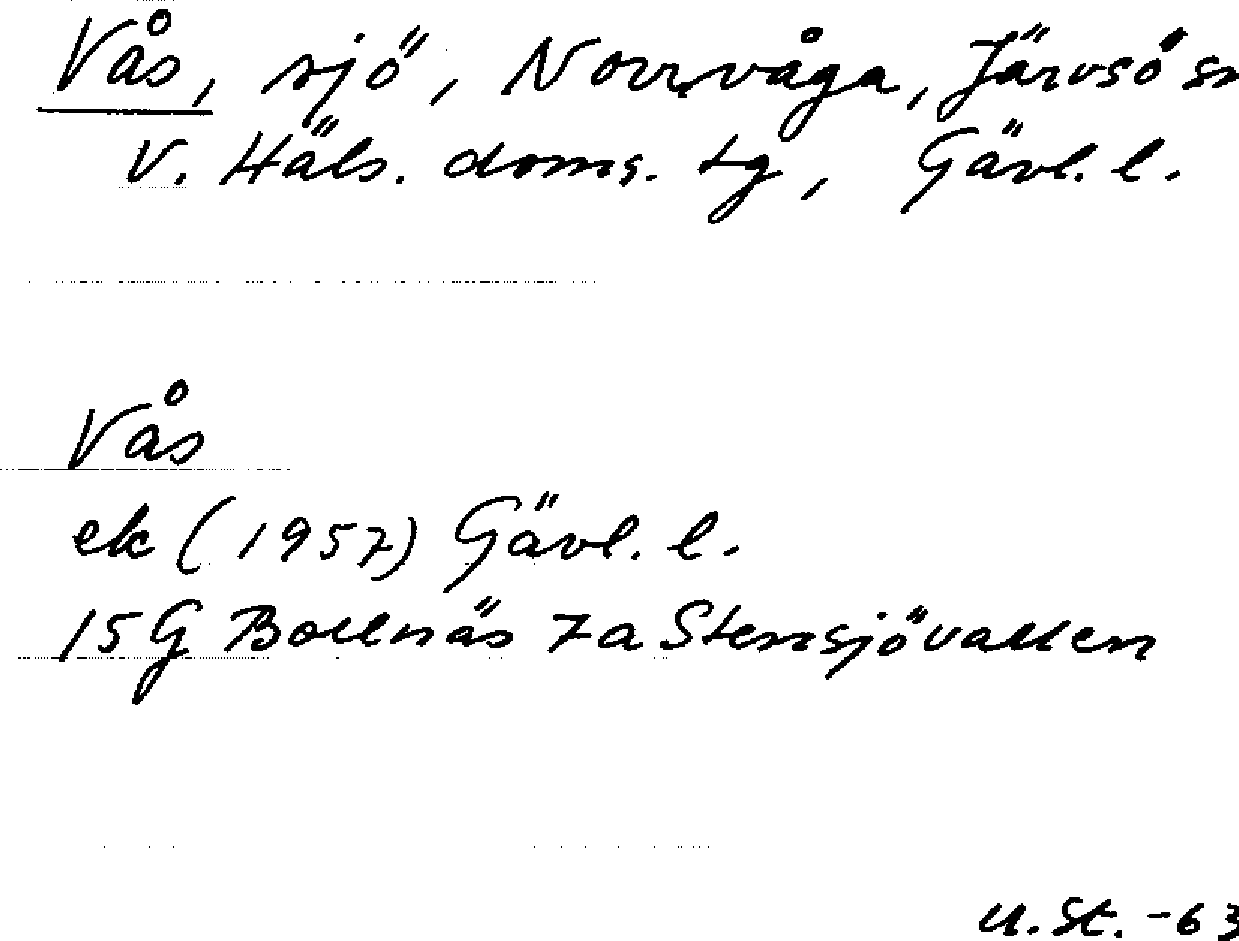 Vås, sjö, Norrvåga, Järvsö sn
V. Häls. doms. tg, Gävl. l.
Vås
ek (1957) Gävl. l.
15G Bollnäs 7a Stensjövallen
U.St. -63